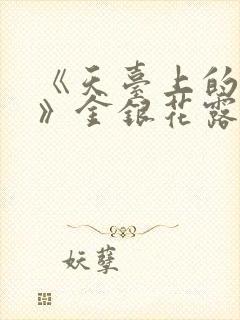 《天臺上的
》金銀花露
妖孽